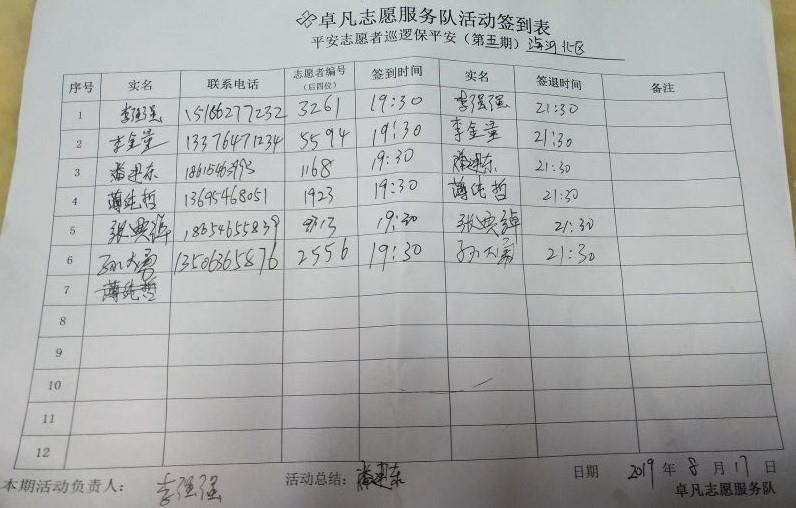 卓凡志愿服务队活动签到表
平安志愿者巡逻保平安（第五期）滨河北区
序号 实名 联系电话 志愿者编号（后四位） 签到时间 实名 签退时间 备注
1 李强强 15186277232 3261 19:30 李强强 21:30
2 李金量 13376471234 5594 19:30 李金量 21:30
3 潘建东 1168 19:30 潘建东 21:30
4 薄纯哲 13695468051 1923 19:30 薄纯哲 21:30
5 张典 18654655839 19:30 张典 21:30
6 孙大勇 13506365876 2556 19:30 孙大勇 21:30
7 薄纯哲
8
9
10
11
12
本期活动负责人： 李强强 活动总结： 潘建东 日期 2019 年 8 月 17 日
卓凡志愿服务队